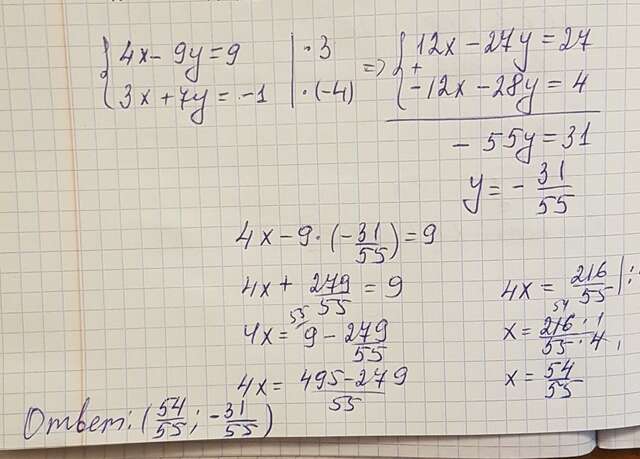 {4x - 9y = 9 | · 3 => {12x - 27y = 27
{3x + 7y = -1 | · (-4) + {-12x - 28y = 4
-55y = 31
y = - 31/55
4x - 9 · (-31/55) = 9
4x + 279/55 = 9
4x = 9 55/ - 279/55
4x = 495-279/55
4x = 216/55 | :
x = 216 54 · 1/55 · 4
x = 54/55
Ответ: (54/55; -31/55)